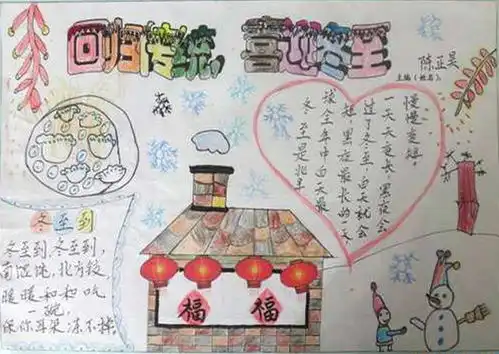 回归传统,喜迎冬至
主编(姓名):
冬至是北半
球全年中白天最
短、黑夜最长的一天,
过了冬至,白天就会
一天天变长,黑夜会
慢慢变短。
冬至到
冬至到,冬至到,
南馄饨,北方饺
暖暖和和吃
一碗
保你耳朵冻不掉
福 福